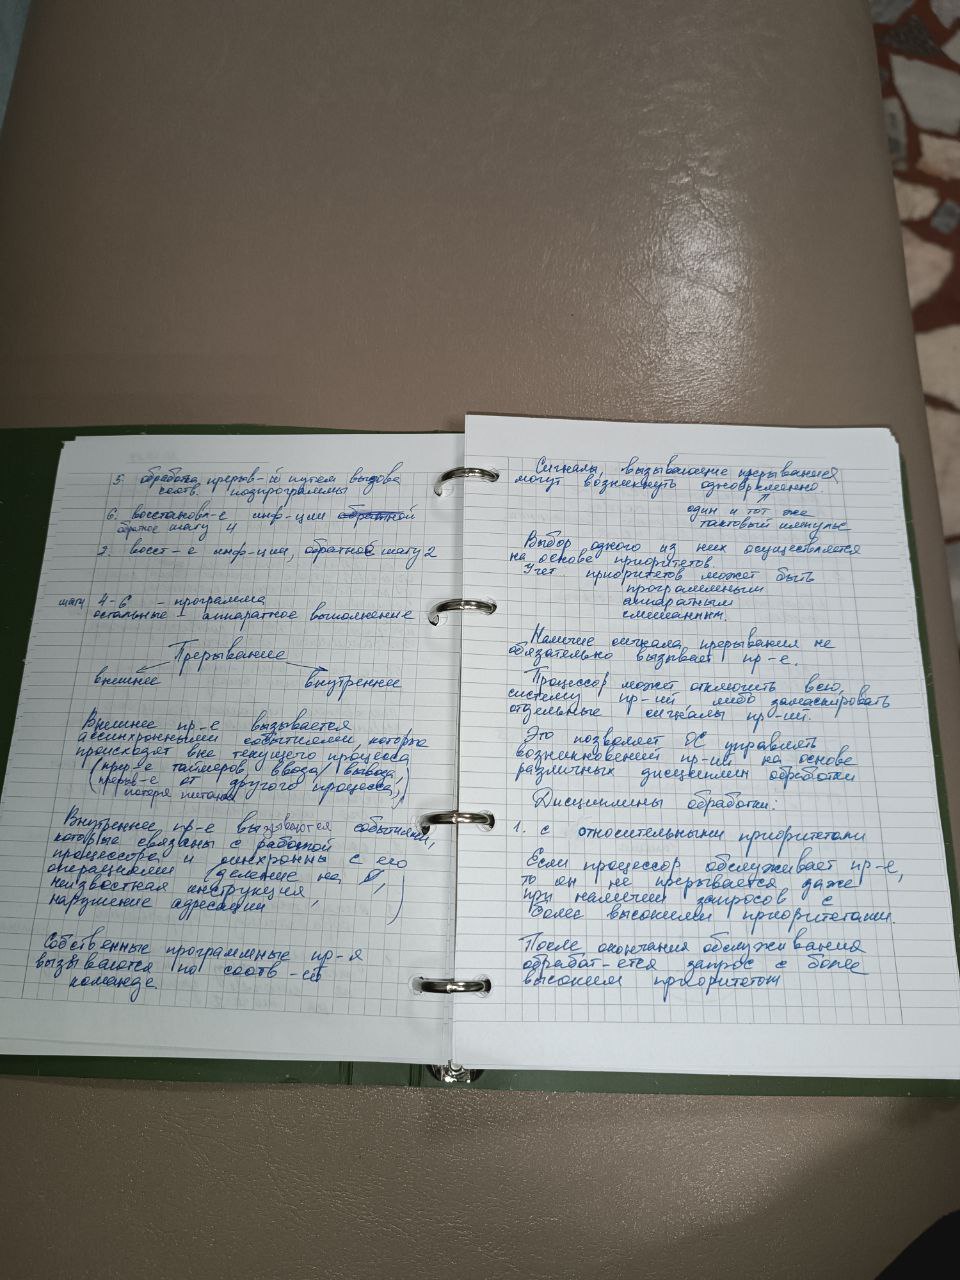 5. обработка прерыв-й путем вызова
соотв. подпрограммы
6. восстановл-е инф-ции обратной
обратное шагу 4
7. восст-е инф-ции, обратное шагу 2
шаги 4-6 - программа
остальные - аппаратное выполнение
Прерывание
внешнее внутреннее
Внешнее пр-е вызывается
ассинхронными событиями, которые
происходят вне текущего процесса
(прер-е таймеров, ввода/вывода,
прерыв-е от другого процесса,
потеря питания)
Внутреннее пр-е вызываются событиями,
которые связаны с работой
процессора и синхронны с его
операциями (деление на 0,
неизвестная инструкция,
нарушение адресации)
Собственные программные пр-я
вызываются по соотв-ей
команде.
Сигналы, вызывающие прерывания
могут возникнуть одновременно.
один и тот же
тактовый импульс
Выбор одного из них осуществляется
на основе приоритетов.
Учет приоритетов может быть
программным
аппаратным
смешанным.
Наличие сигнала прерывания не
обязательно вызывает пр-е.
Процессор может отключить всю
систему пр-ий либо замаскировать
отдельные сигналы пр-ий.
Это позволяет ОС управлять
возникновений пр-ий на основе
различных дисциплин обработки
Дисциплины обработки:
1. с относительными приоритетами
Если процессор обслуживает пр-е,
то он не прерывается даже
при наличии запросов с
более высокими приоритетами.
После окончания обслуживания
обработ-ется запрос с более
высоким приоритетом